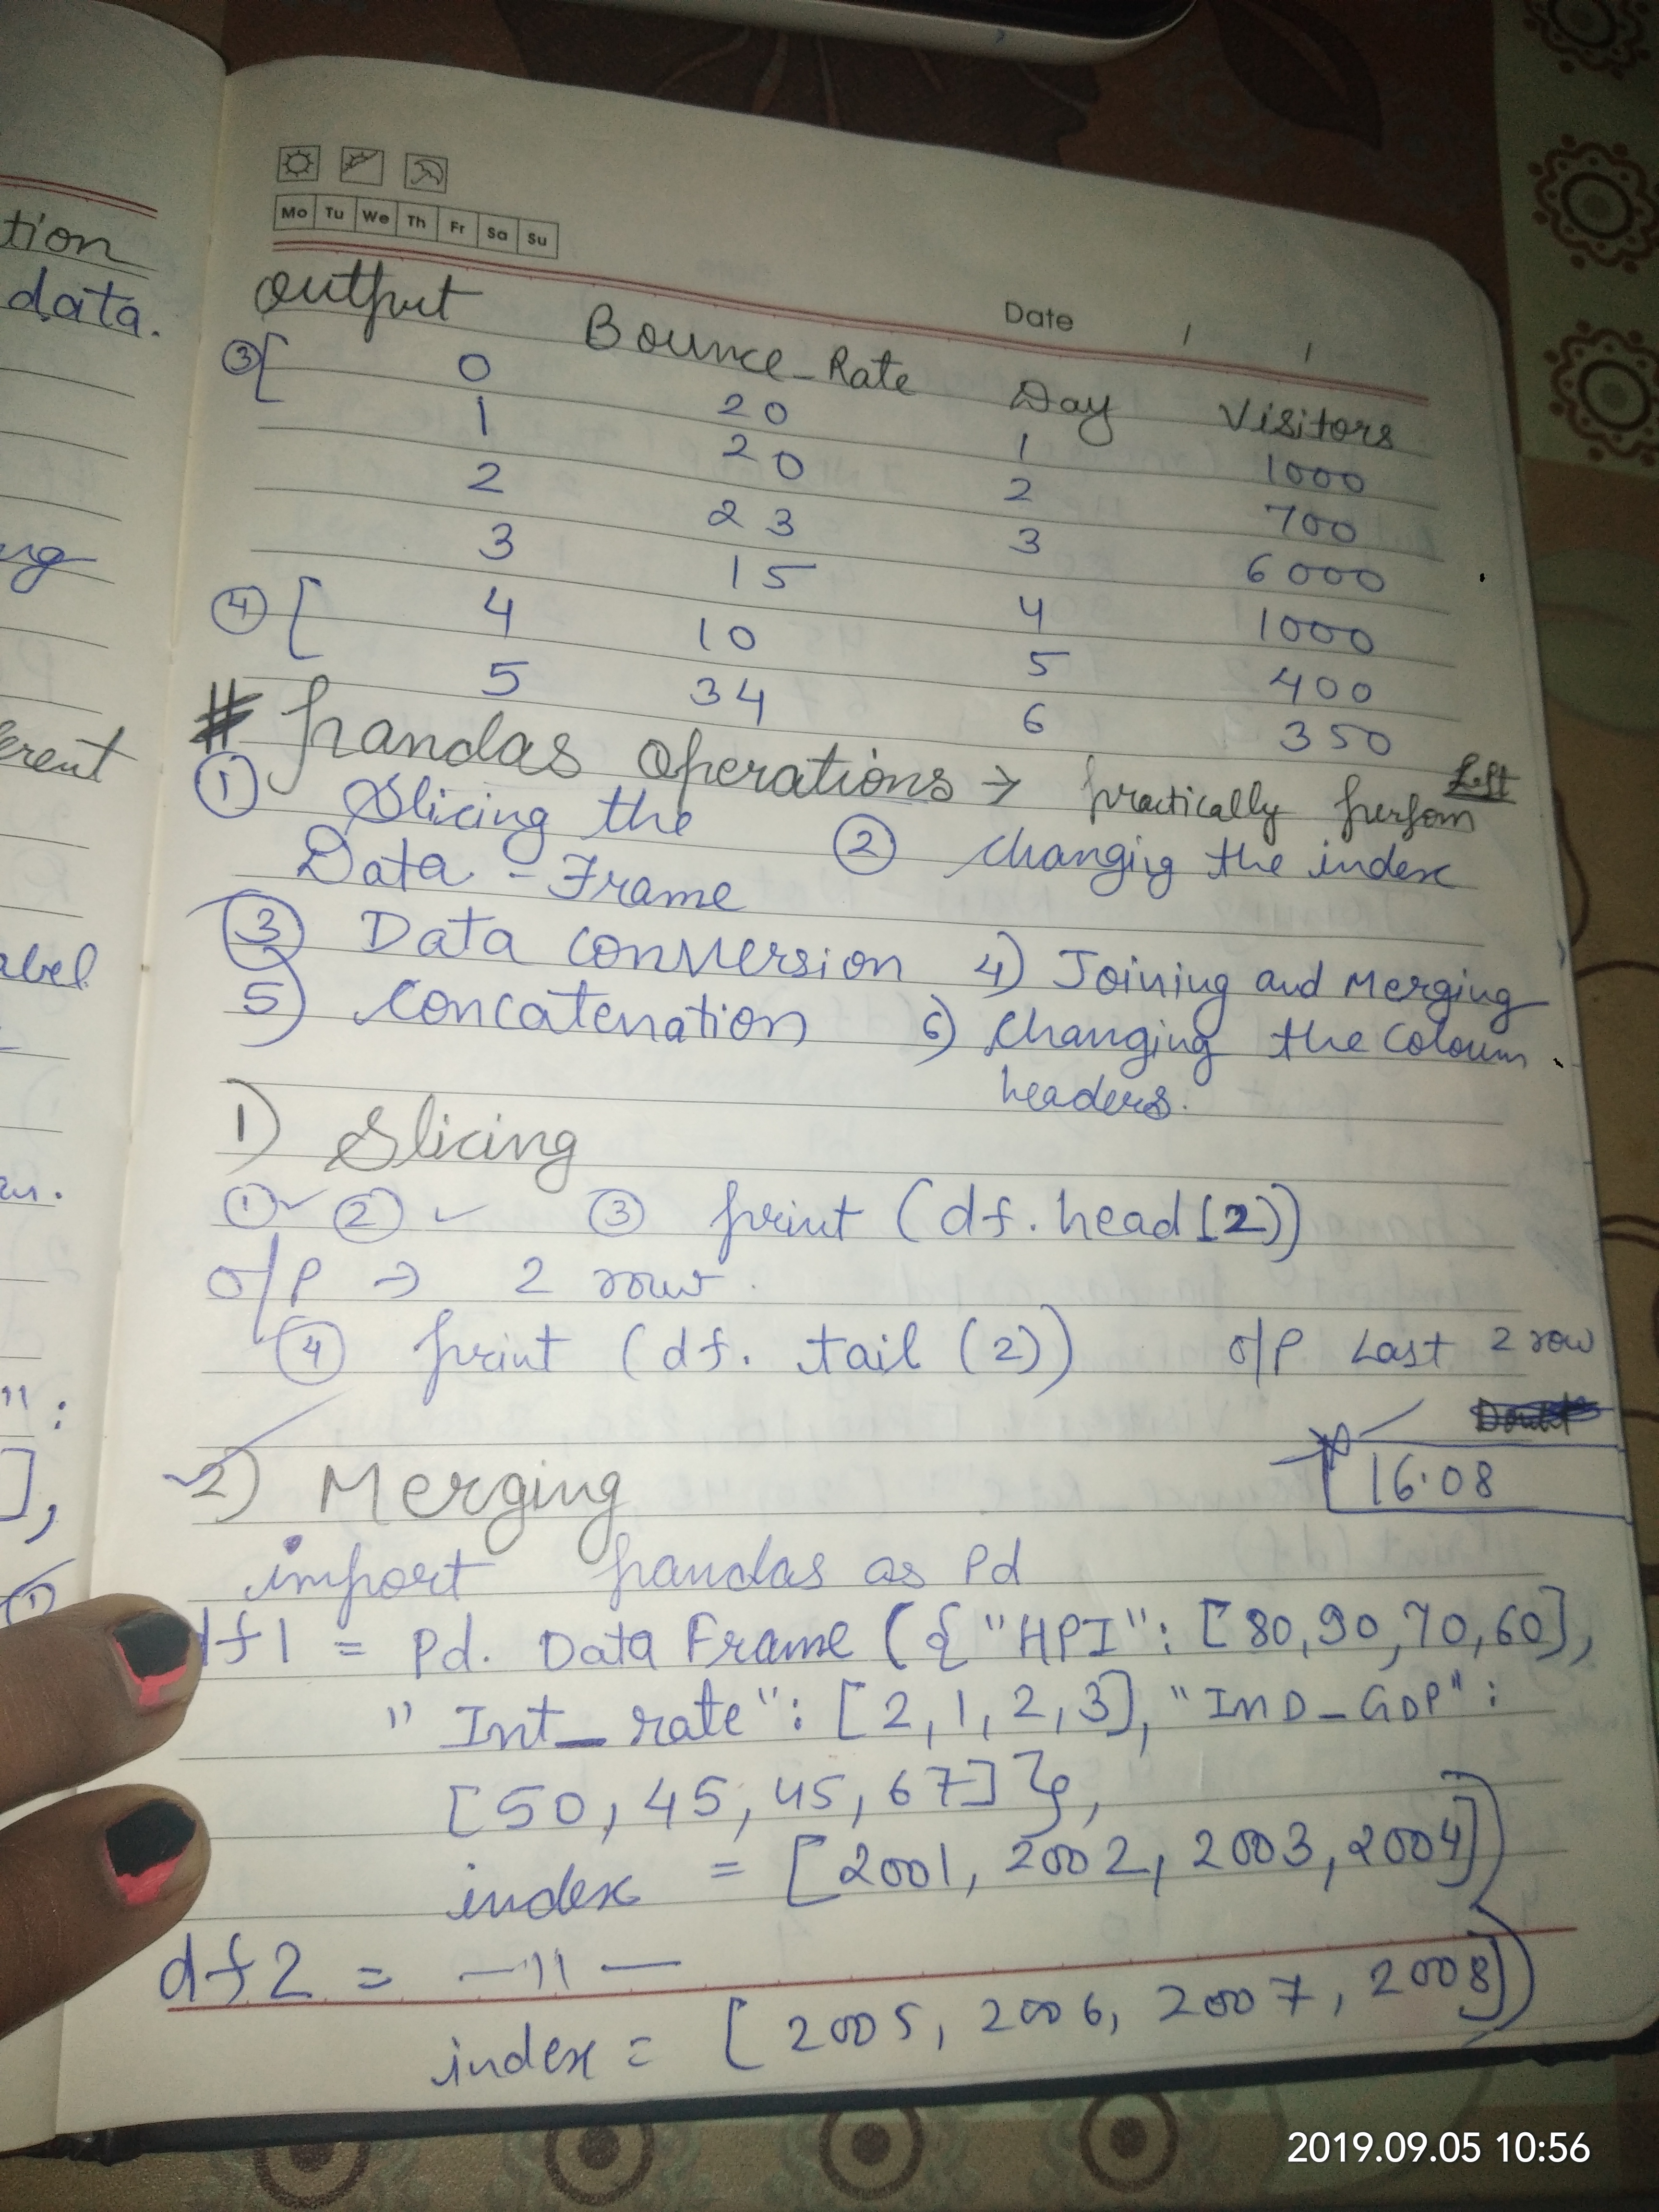 tion
data.
erent
abel
":
],
Mo Tu We Th Fr Sa Su
Date / /
output Bounce_Rate Day Visitors
③[ 0 20 1 1000
1 20 2 700
2 23 3 6000
3 15 4 1000
④[ 4 10 5 400
5 34 6 350
# pandas operations → practically perfom Left
① Slicing the Data-Frame ② changing the index
③ Data conversion 4) Joining and Merging
5) Concatenation 6) changing the Coloum
headers.
1) Slicing
①✓ ②✓ ③ print (df.head(2))
o/p → 2 row.
④ print (df. tail (2)) o/p Last 2 row
2) Merging 16.08
import pandas as Pd
df1 = Pd. DataFrame ({"HPI": [80,90,70,60],
"Int_rate": [2,1,2,3], "IND_GDP":
[50, 45, 45, 67]},
index = [2001, 2002, 2003, 2004])
df2 = —11—
index = [2005, 2006, 2007, 2008])
2019.09.05 10:56